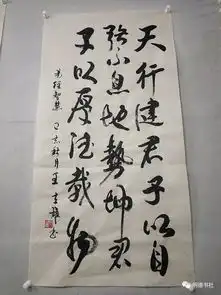 天行健君子以自
强不息地势坤君
子以厚德载物
易经智慧 丁亥秋月